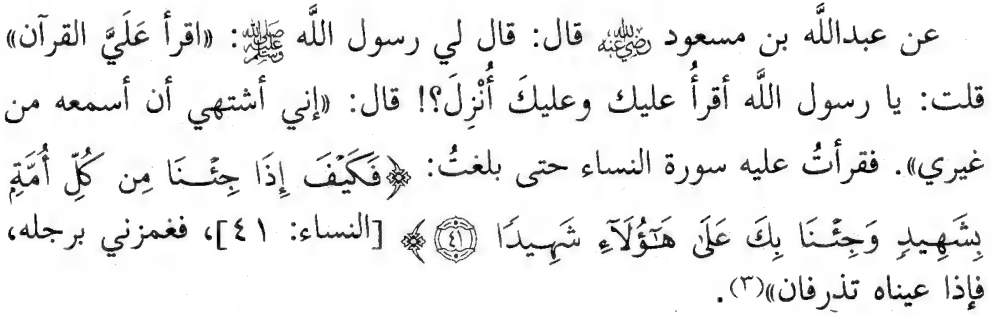 عن عبداللَّه بن مسعود رضي الله عنه قال: قال لي رسول اللَّه ﷺ: «اقرأ عَلَيَّ القرآن»
قلت: يا رسول اللَّه أقرأُ عليك وعليكَ أُنْزِلَ؟! قال: «إني أشتهي أن أسمعه من
غيري». فقرأتُ عليه سورة النساء حتى بلغتُ: ﴿فَكَيْفَ إِذَا جِئْنَا مِن كُلِّ أُمَّةِۭ
بِشَهِيدٍ وَجِئْنَا بِكَ عَلَىٰ هَٰٓؤُلَآءِ شَهِيدًا ٤١﴾ [النساء: ٤١]، فغمزني برجله،
فإذا عيناه تذرفان»(٣).